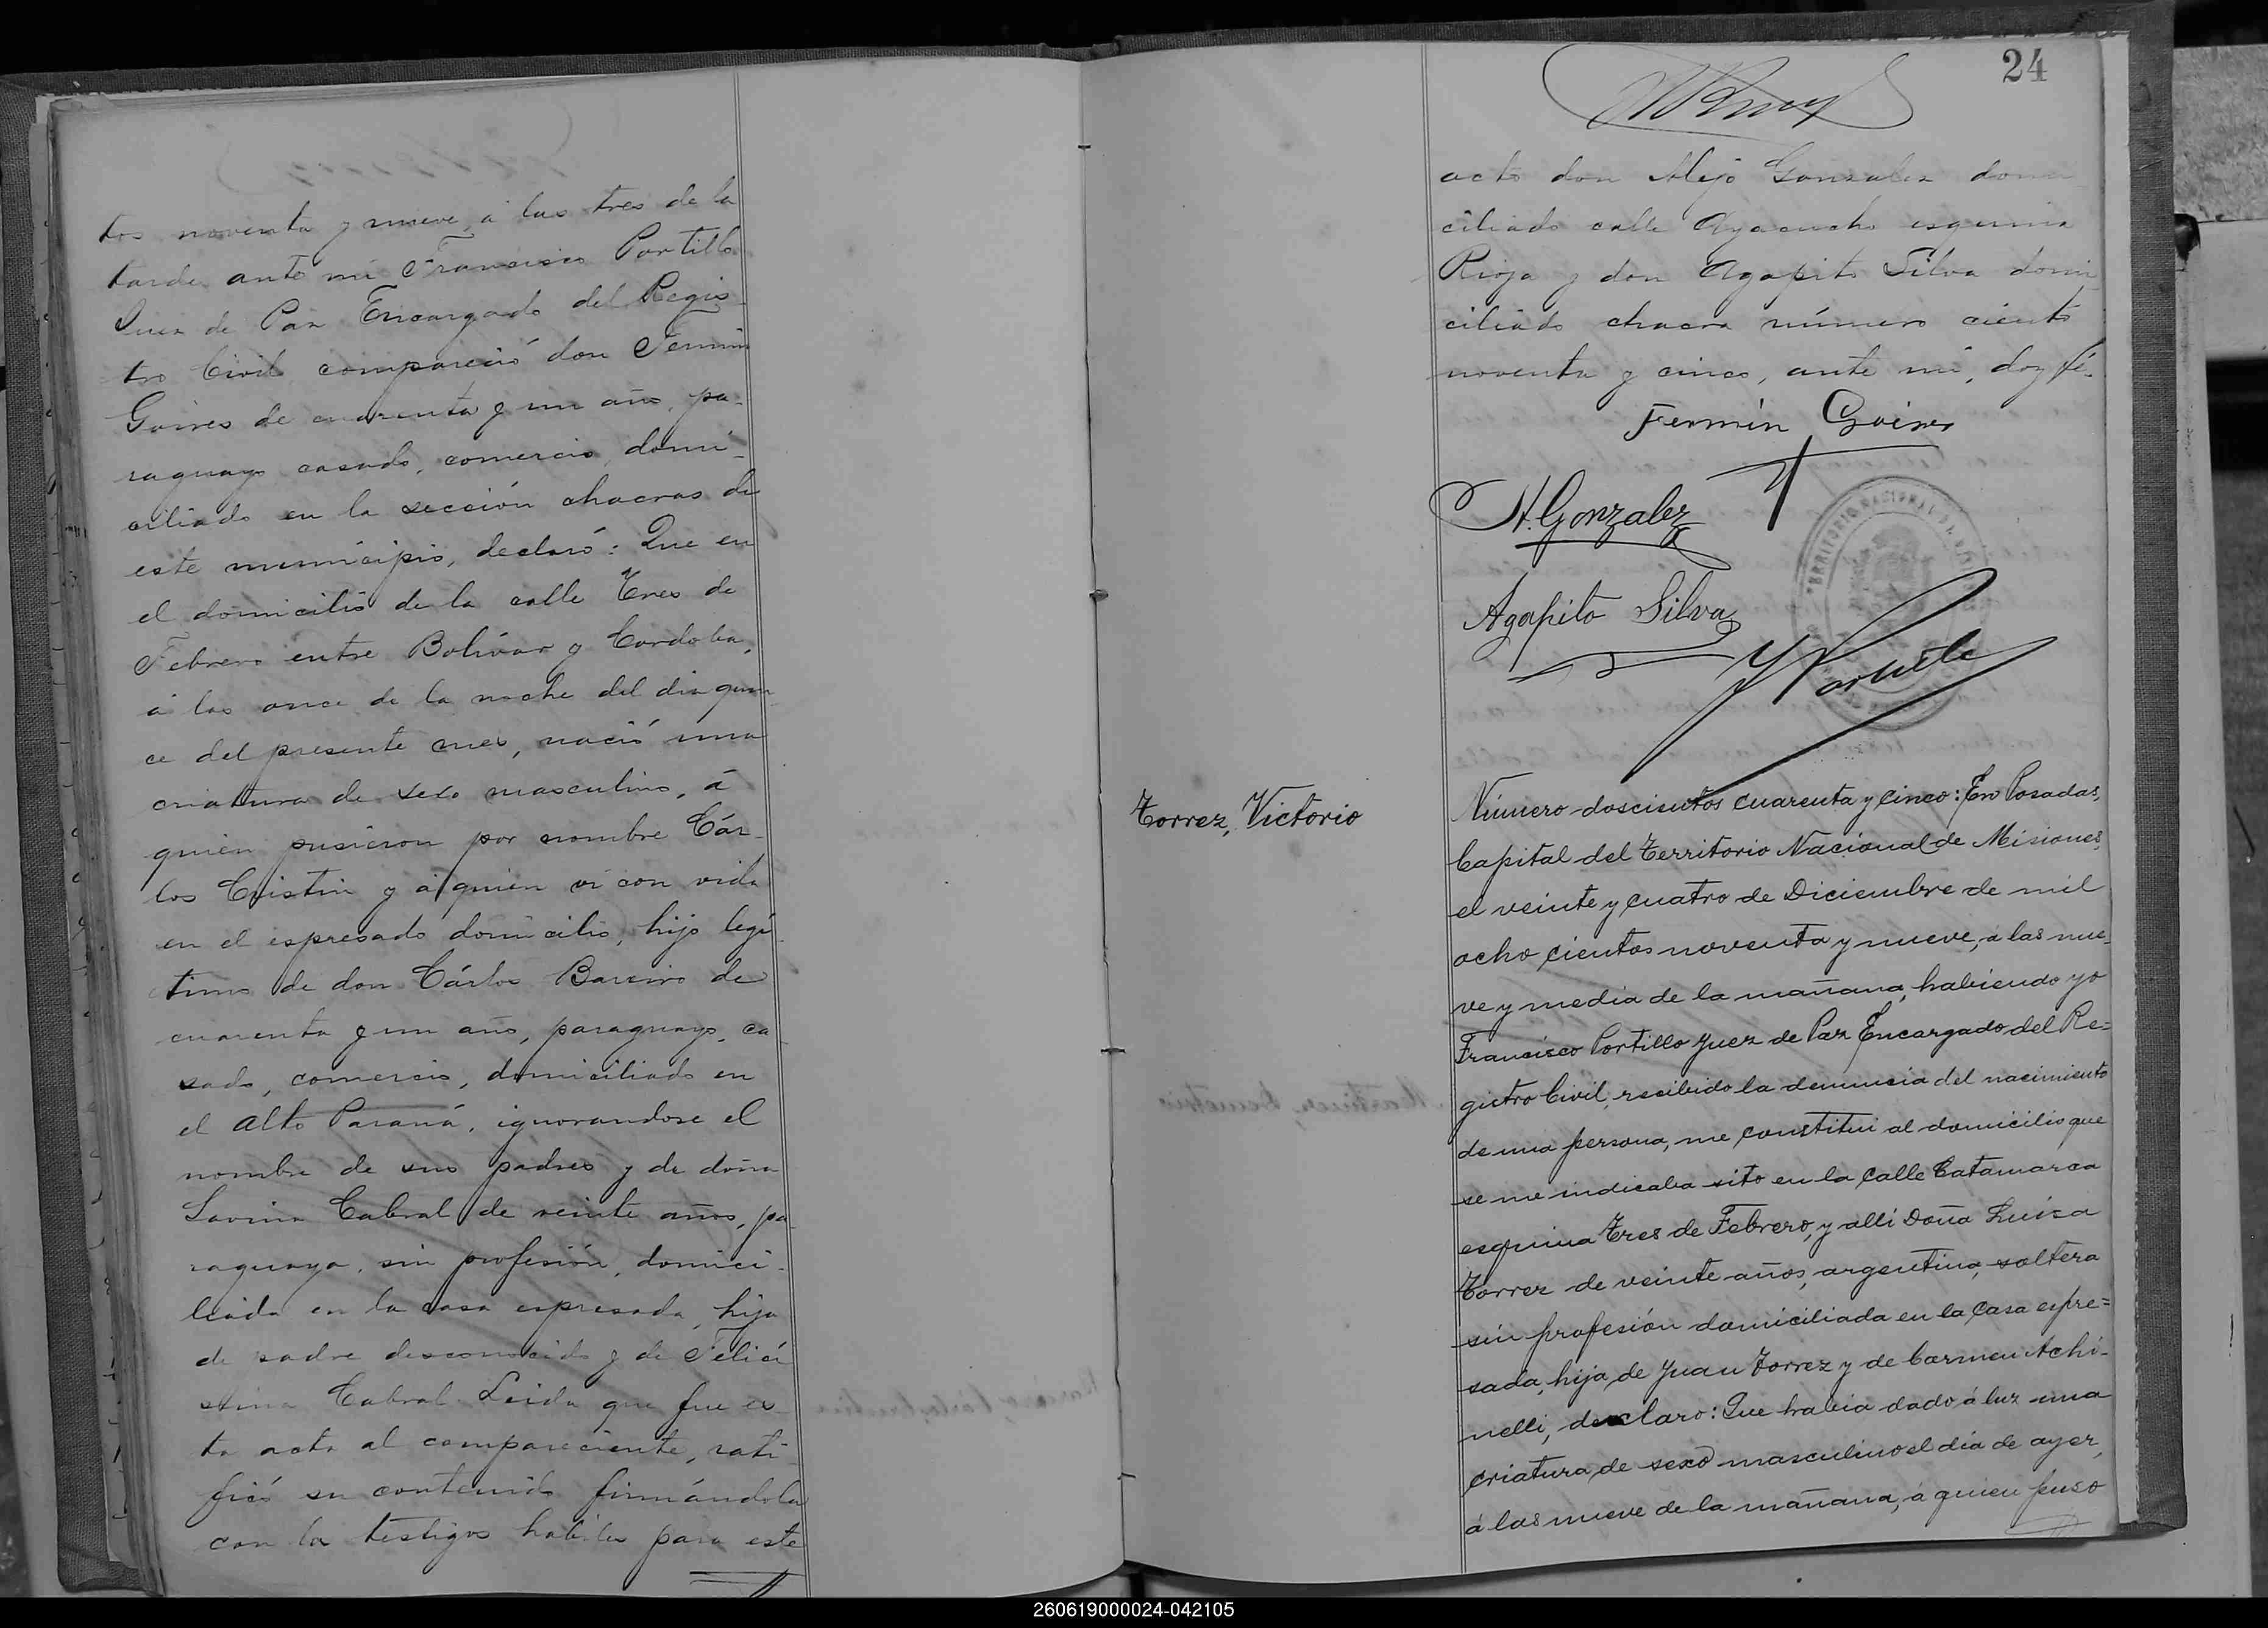 tos noventa y nueve, á las tres de la
tarde ante mi Francisco Portillo
Juez de Paz Encargado del Regis
tro Civil compareció don Fermin
Goires de cuarenta y un año, pa-
raguayo casado, comercio, domi-
ciliado en la sección chacras de
este municipio, declaró: Que en
el domicilio de la calle Tres de
Febrero entre Bolívar y Cordoba,
á las once de la noche del dia quin
ce del presente mes, nació una
criatura de sexo masculino, á
quien pusieron por nombre Cár-
los Cristin y á quien vi con vida
en el espresado domicilio, hijo legí
timo de don Cárlos Barreiro de
cuarenta y un año, paraguayo, ca
sado, comercio, domiciliado en
el Alto Paraná, ignorandose el
nombre de sus padres y de doña
Savina Cabral de veinte años, pa
raguaya, sin profesión, domici-
liada en la casa espresada, hija
de padre desconocido y de Felici
Cabral Leida que fue es
ta acta al compareciente, rati-
ficó su contenido firmándola
con los testigos habiles para este
24
acto don Alejo Gonzalez domi
ciliado calle Ayacucho esquina
Rioja y don Agapito Silva domi
ciliado chacra número ciento
noventa y cinco, ante mi, doy fé.
Fermin Goires
A. Gonzalez
Agapito Silva
Portillo
TERRITORIO NACIONAL
Torrez, Victorio
Número doscientos cuarenta y cinco: En Posadas,
Capital del Territorio Nacional de Misiones,
el veinte y cuatro de Diciembre de mil
ocho cientos noventa y nueve, a las nue-
ve y media de la mañana, habiendo yo
Francisco Portillo Juez de Paz Encargado del Re=
gistro Civil, recibido la denuncia del nacimiento
de una persona, me constitui al domicilio que
se me indicaba sito en la calle Catamarca
esquina Tres de Febrero, y alli Doña Luisa
Torrez de veinte años, argentina, soltera
sin profesión domiciliada en la casa espre=
sada, hija de Juan Torrez y de Carmen Achi-
nelli, declaro: Que habia dado á luz una
criatura de sexo masculino el día de ayer,
á las nueve de la mañana, á quien puso
260619000024-042105